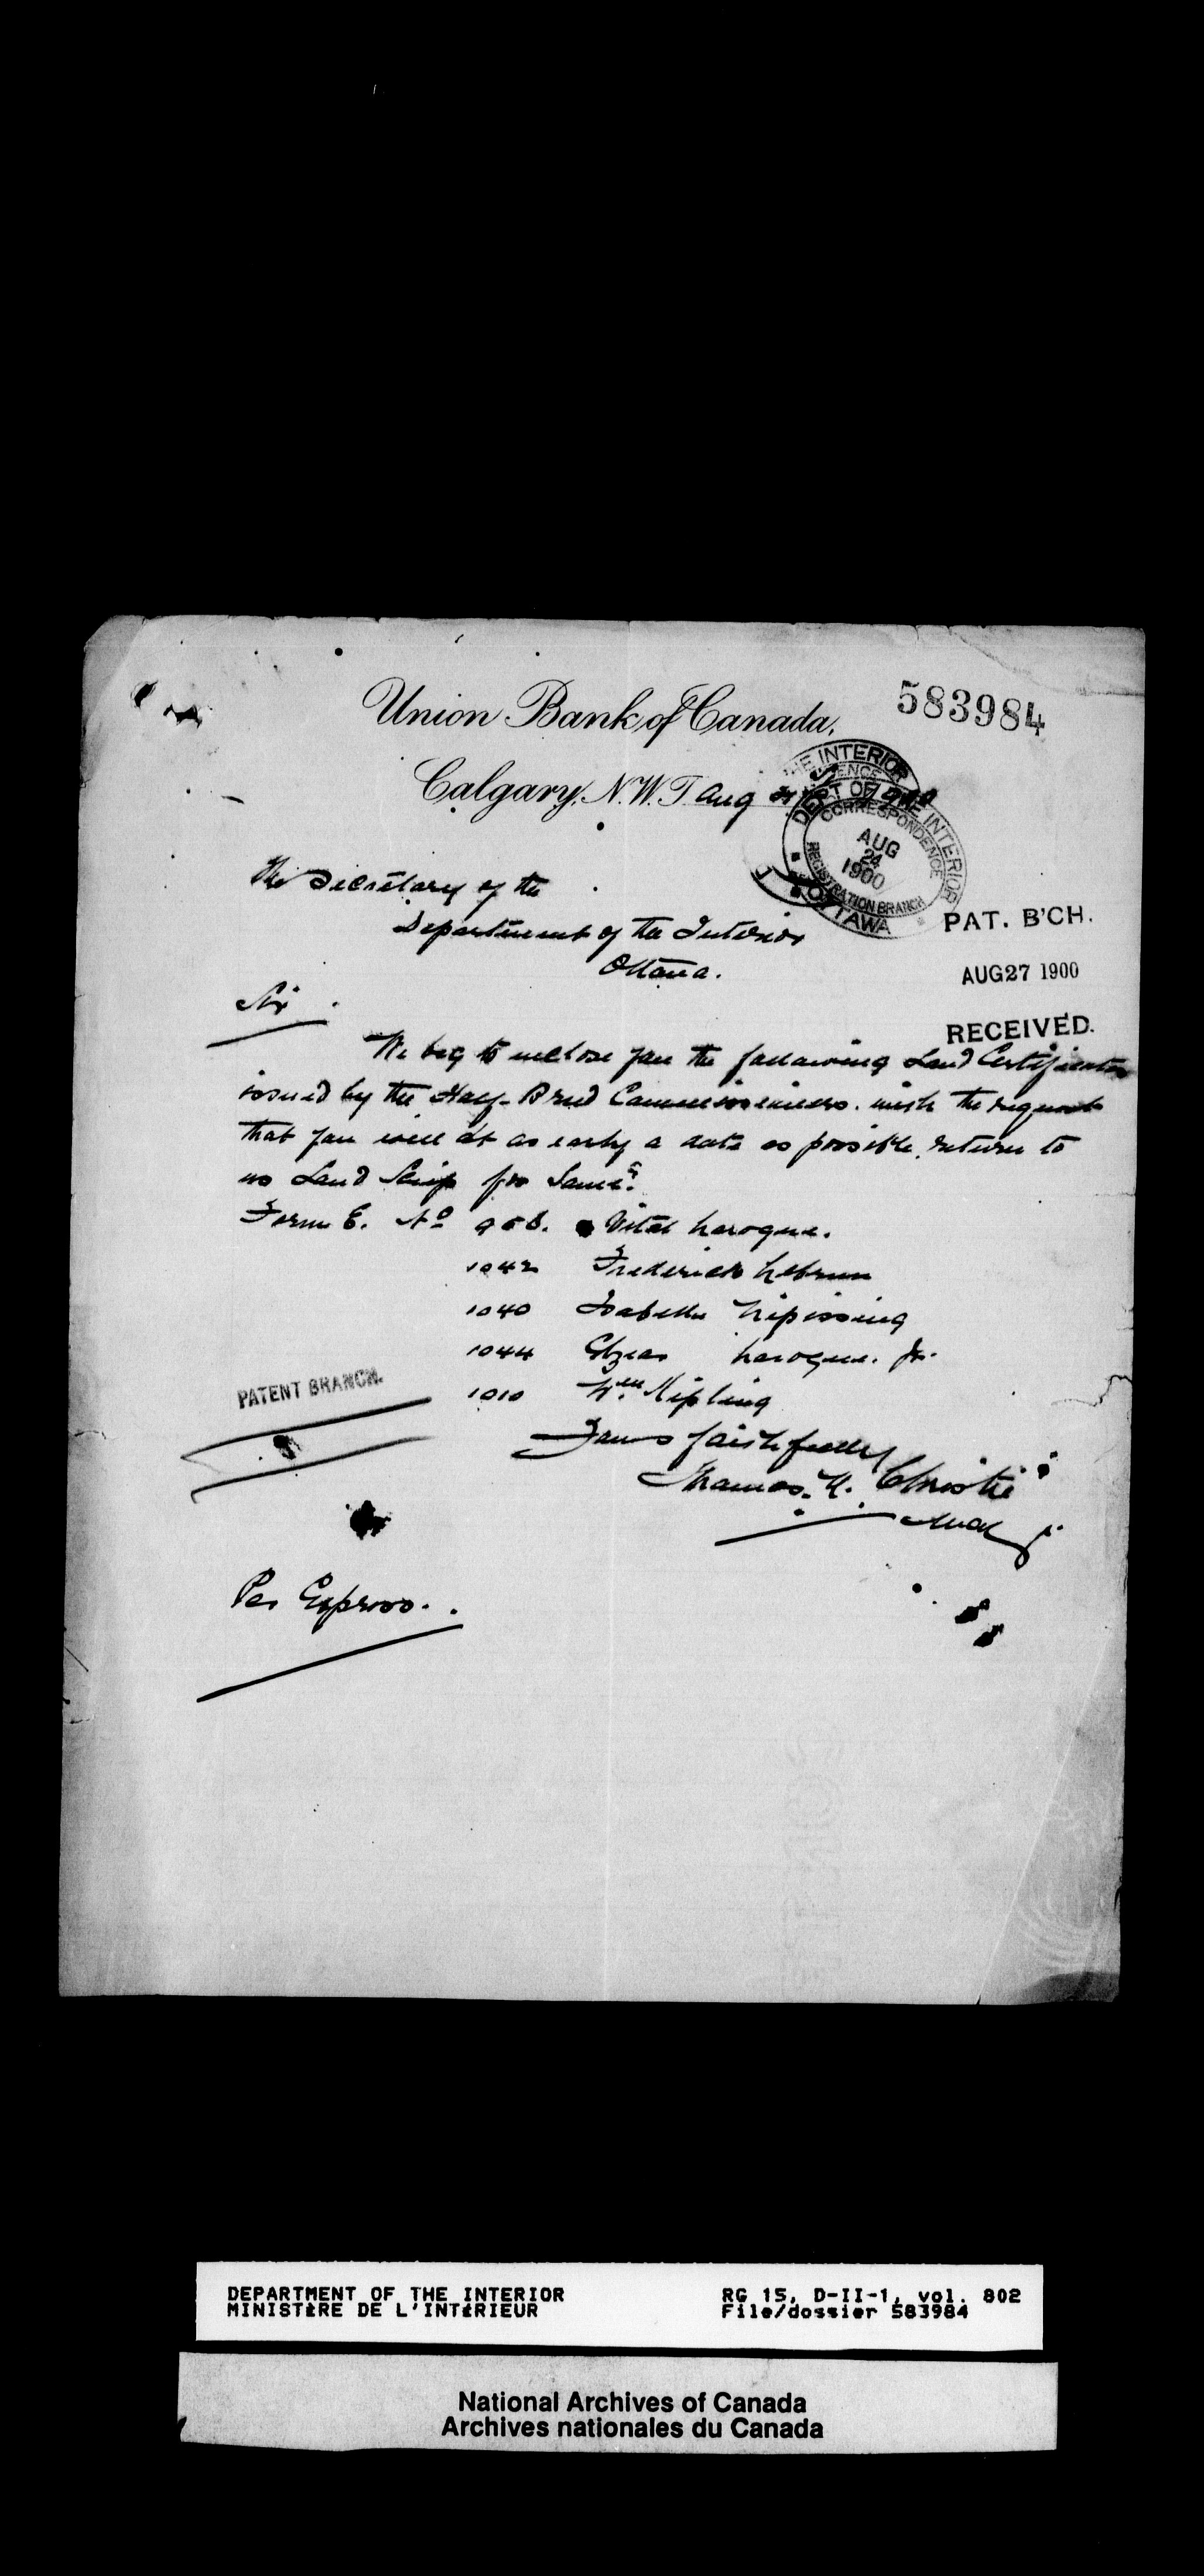 583984
Union Bank of Canada,
Calgary, N.W.T Aug 1900
THE INTERIOR
DEPT OF THE INTERIOR
CORRESPONDENCE
AUG
24
1900
REGISTRATION BRANCH
OTTAWA
The Secretary of the
Department of the Interior
Ottawa.
PAT. B'CH.
AUG 27 1900
RECEIVED.
Sir
We beg to enclose you the following Land Certificates
issued by the Half-Breed Commissioners. with the request
that you will at as early a date as possible return to
us Land Scrip for same.
Form E. No 958. Vital Laroque.
1042 Frederick Lebrun
1040 Isabella Nipissing
1044 Elzear Laroque. Jr.
1010 Wm Kipling
PATENT BRANCH.
Yours faithfully
Thomas. Christie
Per Express.
DEPARTMENT OF THE INTERIOR
MINISTÈRE DE L'INTÉRIEUR
RG 15, D-II-1, vol. 802
File/dossier 583984
National Archives of Canada
Archives nationales du Canada